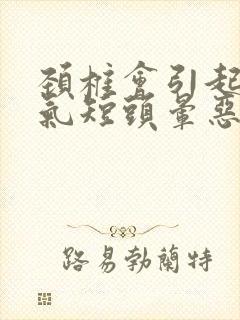 頸椎會引起
氣短頭暈惡
路易勃蘭特